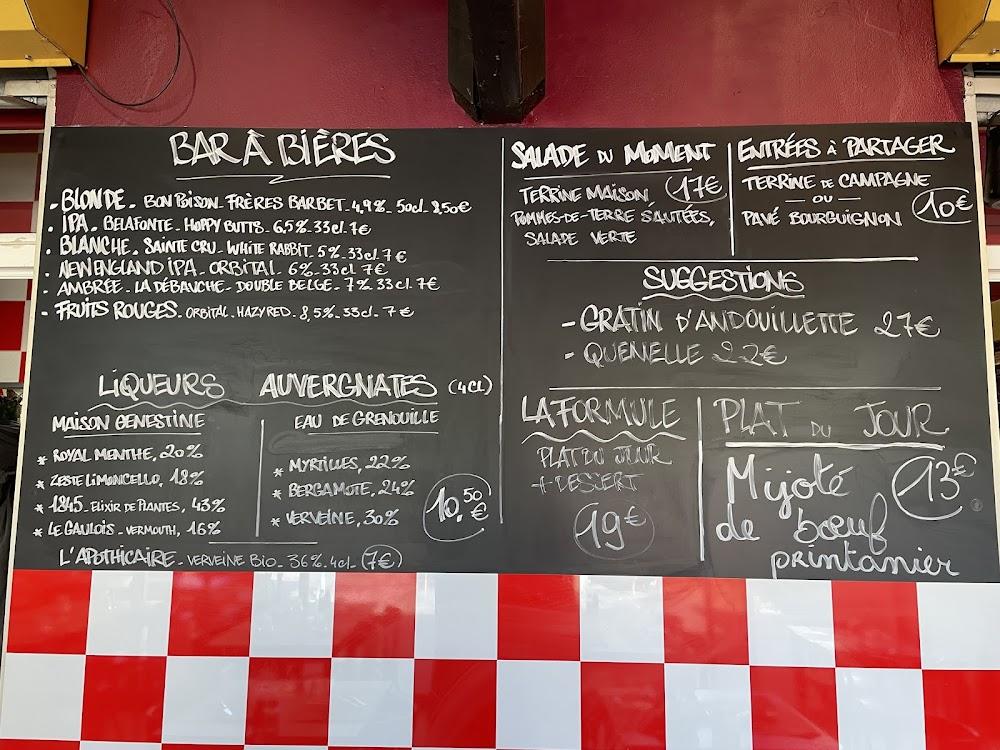 BAR À BIÈRES
- BLONDE. BON POISON. FRÈRES BARBET. 4,9%. 50cl. 8,50€
- IPA. BELAFONTE. HOPPY BUTTS. 6,5%. 33cl. 7€
- BLANCHE. SAINTE CRU. WHITE RABBIT. 5%. 33cl. 7€
- NEW ENGLAND IPA. ORBITAL. 6%. 33cl. 7€
- AMBRÉE. LA DÉBAUCHE. DOUBLE BELGE. 7%. 33cl. 7€
- FRUITS ROUGES. ORBITAL. HAZY RED. 8,5%. 33cl. 7€
LIQUEURS AUVERGNATES (4CL)
MAISON GENESTINE
* ROYAL MENTHE, 20%
* ZESTE LIMONCELLO, 18%
* 1845. ELIXIR DE PLANTES, 43%
* LE GAULOIS. VERMOUTH, 16%
EAU DE GRENOUILLE
* MYRTILLES, 22%
* BERGAMOTE, 24%
* VERVEINE, 30%
10.50€
L'APOTHICAIRE. VERVEINE BIO. 36%. 4cl. 7€
SALADE DU MOMENT
TERRINE MAISON 17€
POMMES-DE-TERRE SAUTÉES,
SALADE VERTE
ENTRÉES À PARTAGER
TERRINE DE CAMPAGNE
- OU -
PAVÉ BOURGUIGNON
10€
SUGGESTIONS
- GRATIN D'ANDOUILLETTE 27€
- QUENELLE 22€
LA FORMULE
PLAT DU JOUR
+ DESSERT
19€
PLAT DU JOUR
Mijoté 13€
de bœuf
printanier